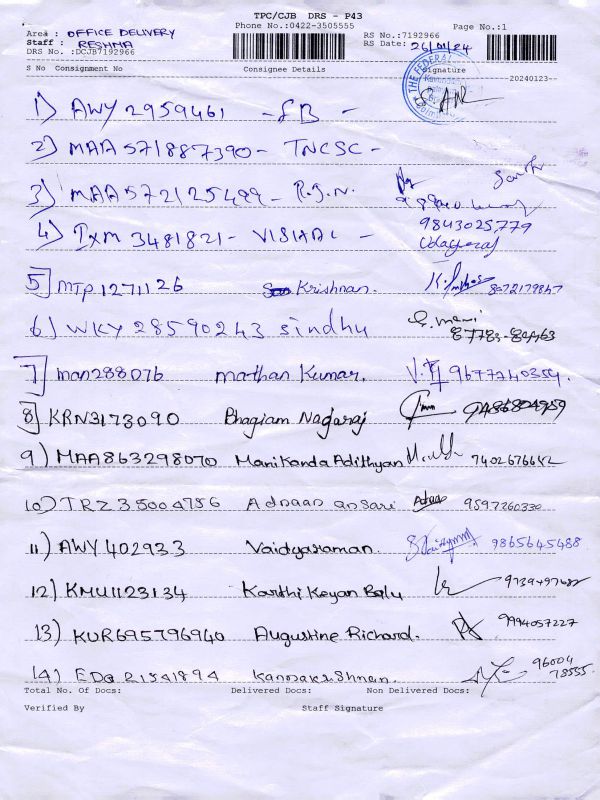 TPC/CJB DRS - P43
Phone No.:0422-3505555
Page No.:1
Area : OFFICE DELIVERY
RS No.:7192966
Staff : RESHMA
RS Date: 26/01/24
DRS No. :DCJB7192966
S No Consignment No Consignee Details Signature
20240123--
THE FEDERAL
1) AWY 2959461 - FB -
2) MAA 571887390 - TNCSC -
3) MAA 572125499 - R.J.N.
4) IXM 3481821 - VISHAL - 9843025779
Udayaraj
5] MTP1271126 Krishnan. 8072179847
6) WKY 28590243 sindhu
7] man288076 mathan Kumar. 9677240354.
8] KRN3173090 Bhagiam Nagaraj 9486804959
9) MAA863298070 Manikanda Adithyan 7402676642
10) TRZ35004756 Adnaan ansari Adnaan 9597260330
11) AWY 402933 Vaidyaraman. 9865645488
12) KMU1123134 Karthi Keyan Balu
13) KUR695796940 Augustine Richard. 9994057227
14) EDO21541894 Kannakrishnan. 96004
78555
Total No. Of Docs: Delivered Docs: Non Delivered Docs:
Verified By Staff Signature